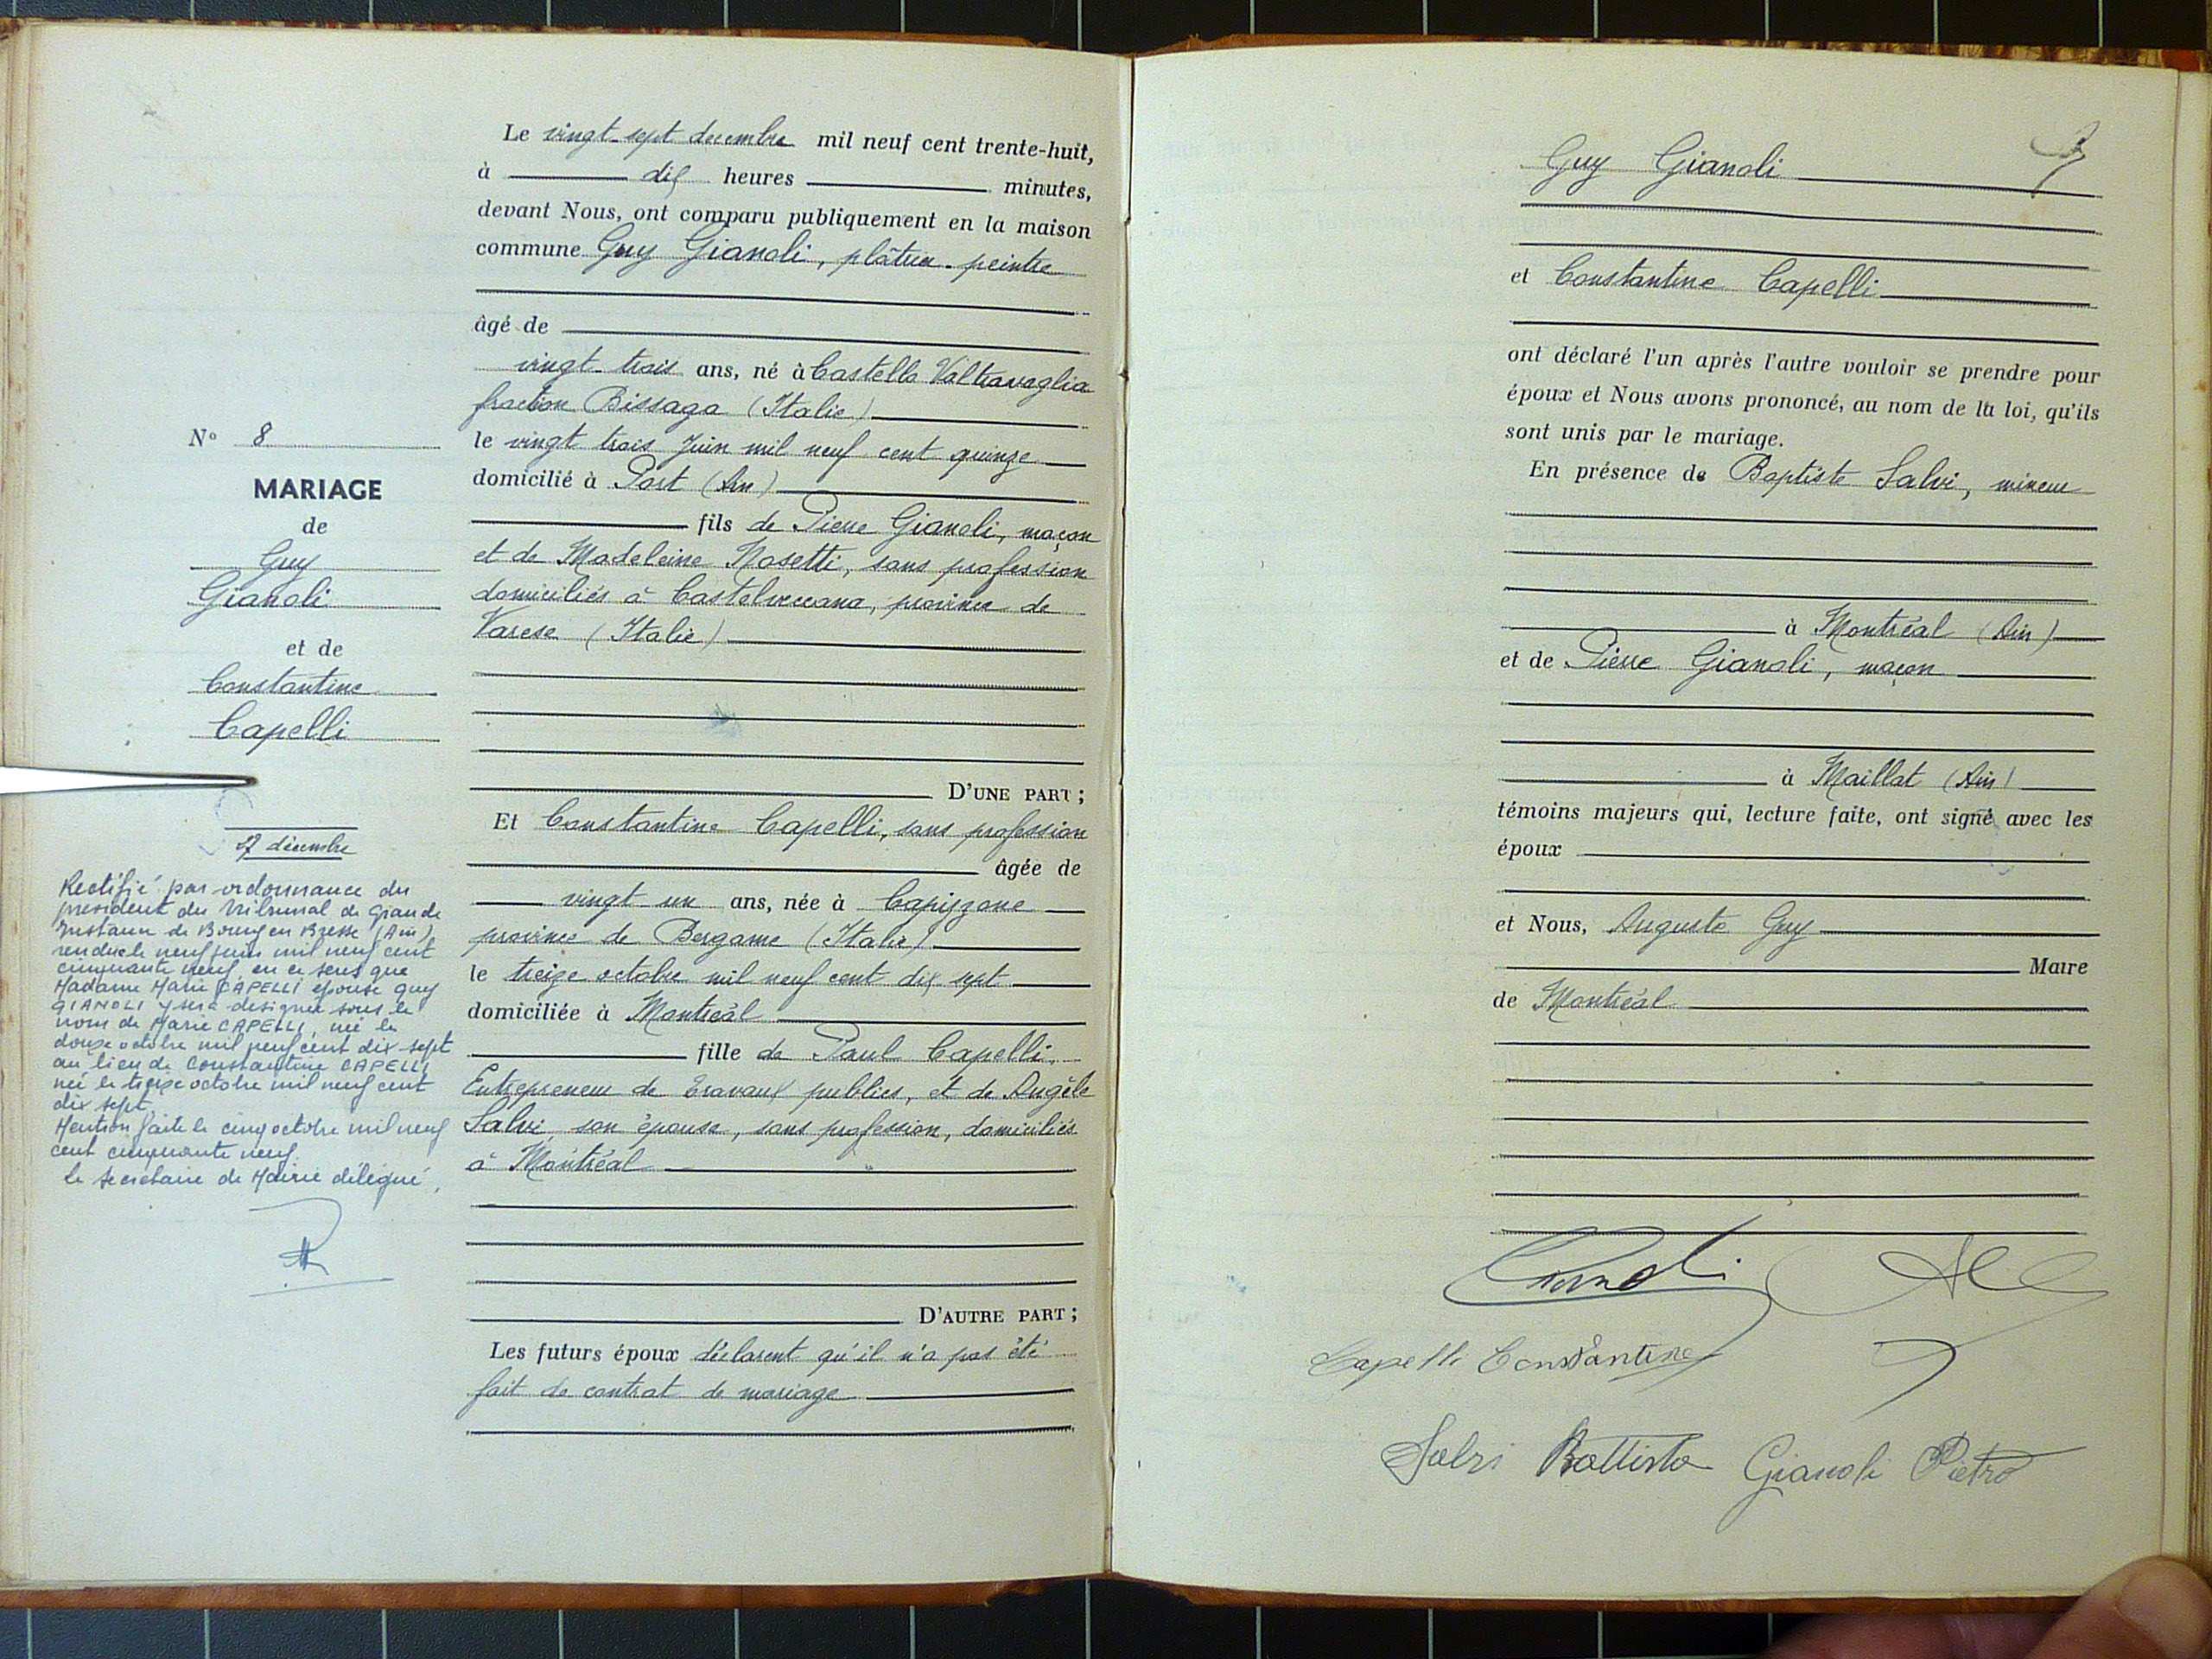 Le vingt-sept decembre mil neuf cent trente-huit,
à dix heures minutes,
devant Nous, ont comparu publiquement en la maison
commune Guy Gianoli, plâtrier-peintre
âgé de
vingt-trois ans, né à Castello Valtravaglia
fraction Bissaga (Italie)
le vingt trois Juin mil neuf cent quinze
domicilié à Port (Ain)
fils de Pierre Gianoli, maçon
et de Madeleine Nosetti, sans profession
domiciliés à Castelveccana, province de
Varese (Italie)
D'UNE PART ;
Et Constantine Capelli, sans profession
âgée de
vingt un ans, née à Capizzone
province de Bergame (Italie)
le treize octobre mil neuf cent dix sept
domiciliée à Montréal
fille de Paul Capelli,
Entrepreneur de travaux publics, et de Angèle
Salvi, son épouse, sans profession, domiciliés
à Montréal
D'AUTRE PART ;
Les futurs époux déclarent qu'il n'a pas été
fait de contrat de mariage
N° 8
MARIAGE
de
Guy
Gianoli
et de
Constantine
Capelli
27 décembre
Rectifié par ordonnance du
président du Tribunal de Grande
Instance de Bourg en Bresse (Ain)
rendue le neuf juin mil neuf cent
cinquante neuf, en ce sens que
Madame Marie CAPELLI épouse Guy
GIANOLI y sera désignée sous le
nom de Marie CAPELLI, née le
douze octobre mil neuf cent dix-sept
au lieu de Constantine CAPELLI
née le treize octobre mil neuf cent
dix sept.
Mention faite le cinq octobre mil neuf
cent cinquante neuf.
Le secrétaire de Mairie délégué,
Guy Gianoli
et Constantine Capelli
ont déclaré l'un après l'autre vouloir se prendre pour
époux et Nous avons prononcé, au nom de la loi, qu'ils
sont unis par le mariage.
En présence de Baptiste Salvi, mineur
à Montréal (Ain)
et de Pierre Gianoli, maçon
à Maillat (Ain)
témoins majeurs qui, lecture faite, ont signé avec les
époux
et Nous, Auguste Guy
Maire
de Montréal
Gianoli
Capelli Constantine
Salvi Battista Gianoli Pietro